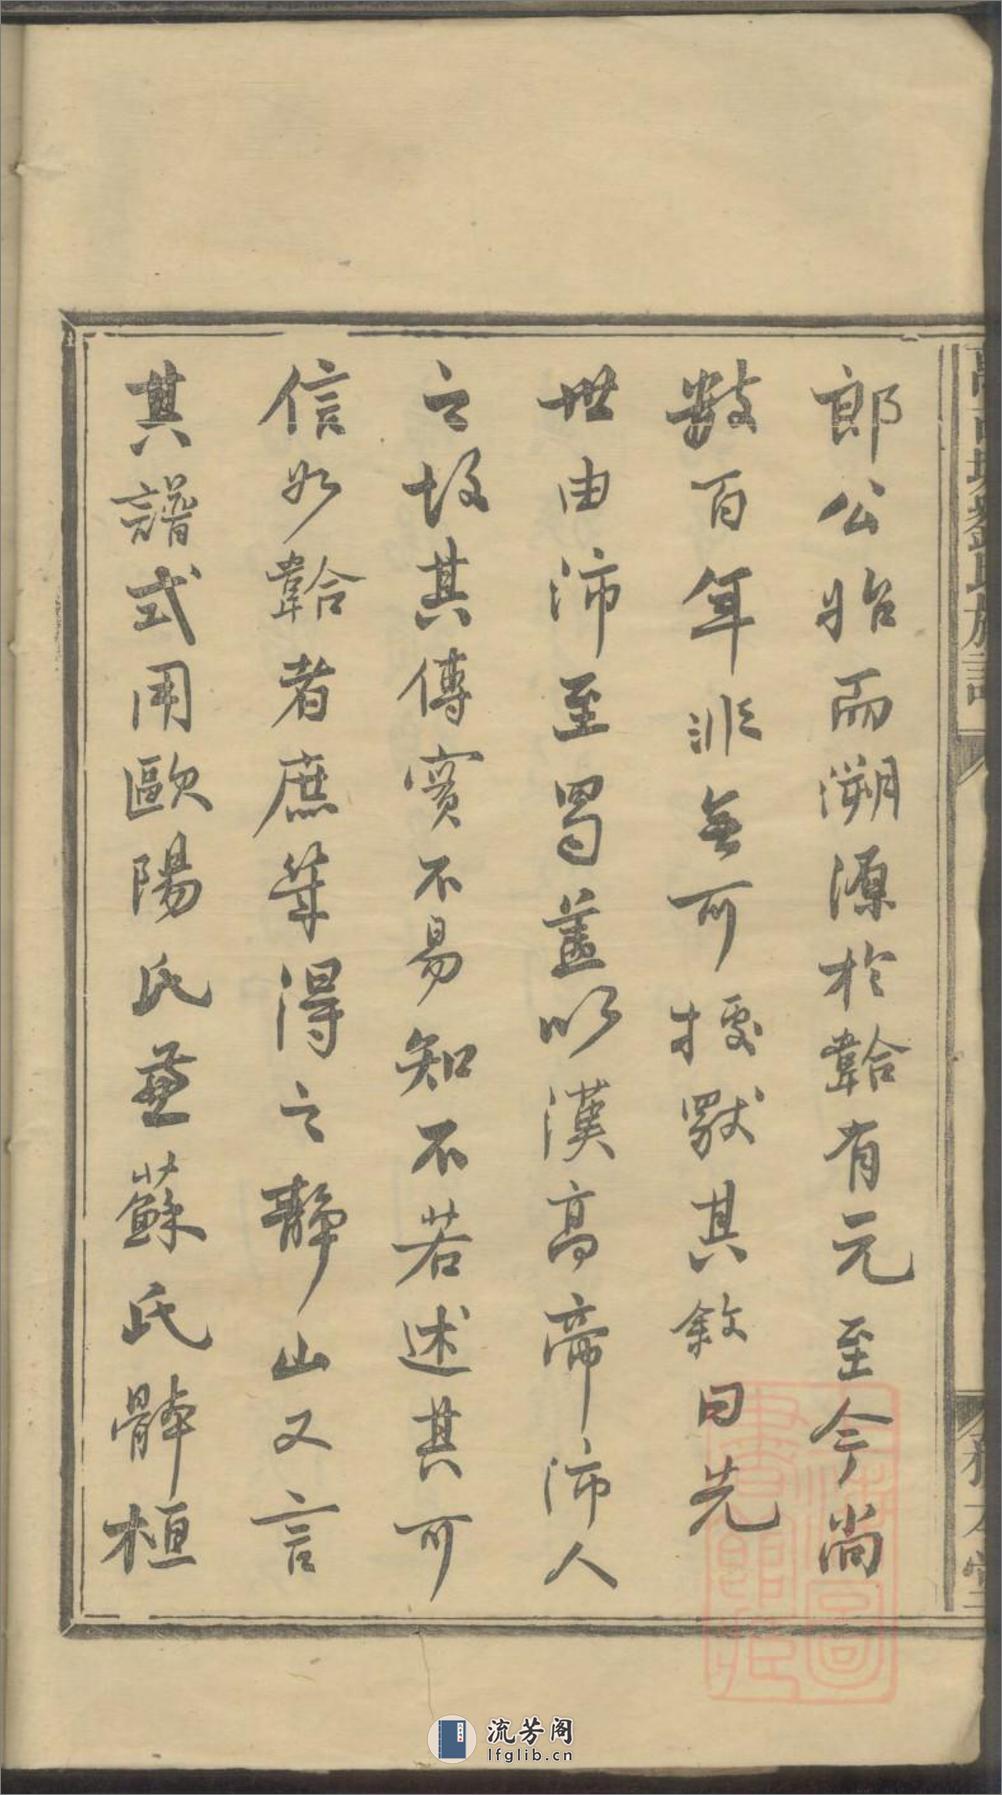 郎公始而溯源於韐有元至今尚
數百年非無可據獻其敘曰先
世由沛至蜀蓋以漢高帝沛人
之故其傳實不易知不若述其可
信如韐者庶幾得之靜山又言
其譜式用歐陽氏兼蘇氏體極
劉氏族譜
流芳阁
lfglib.cn